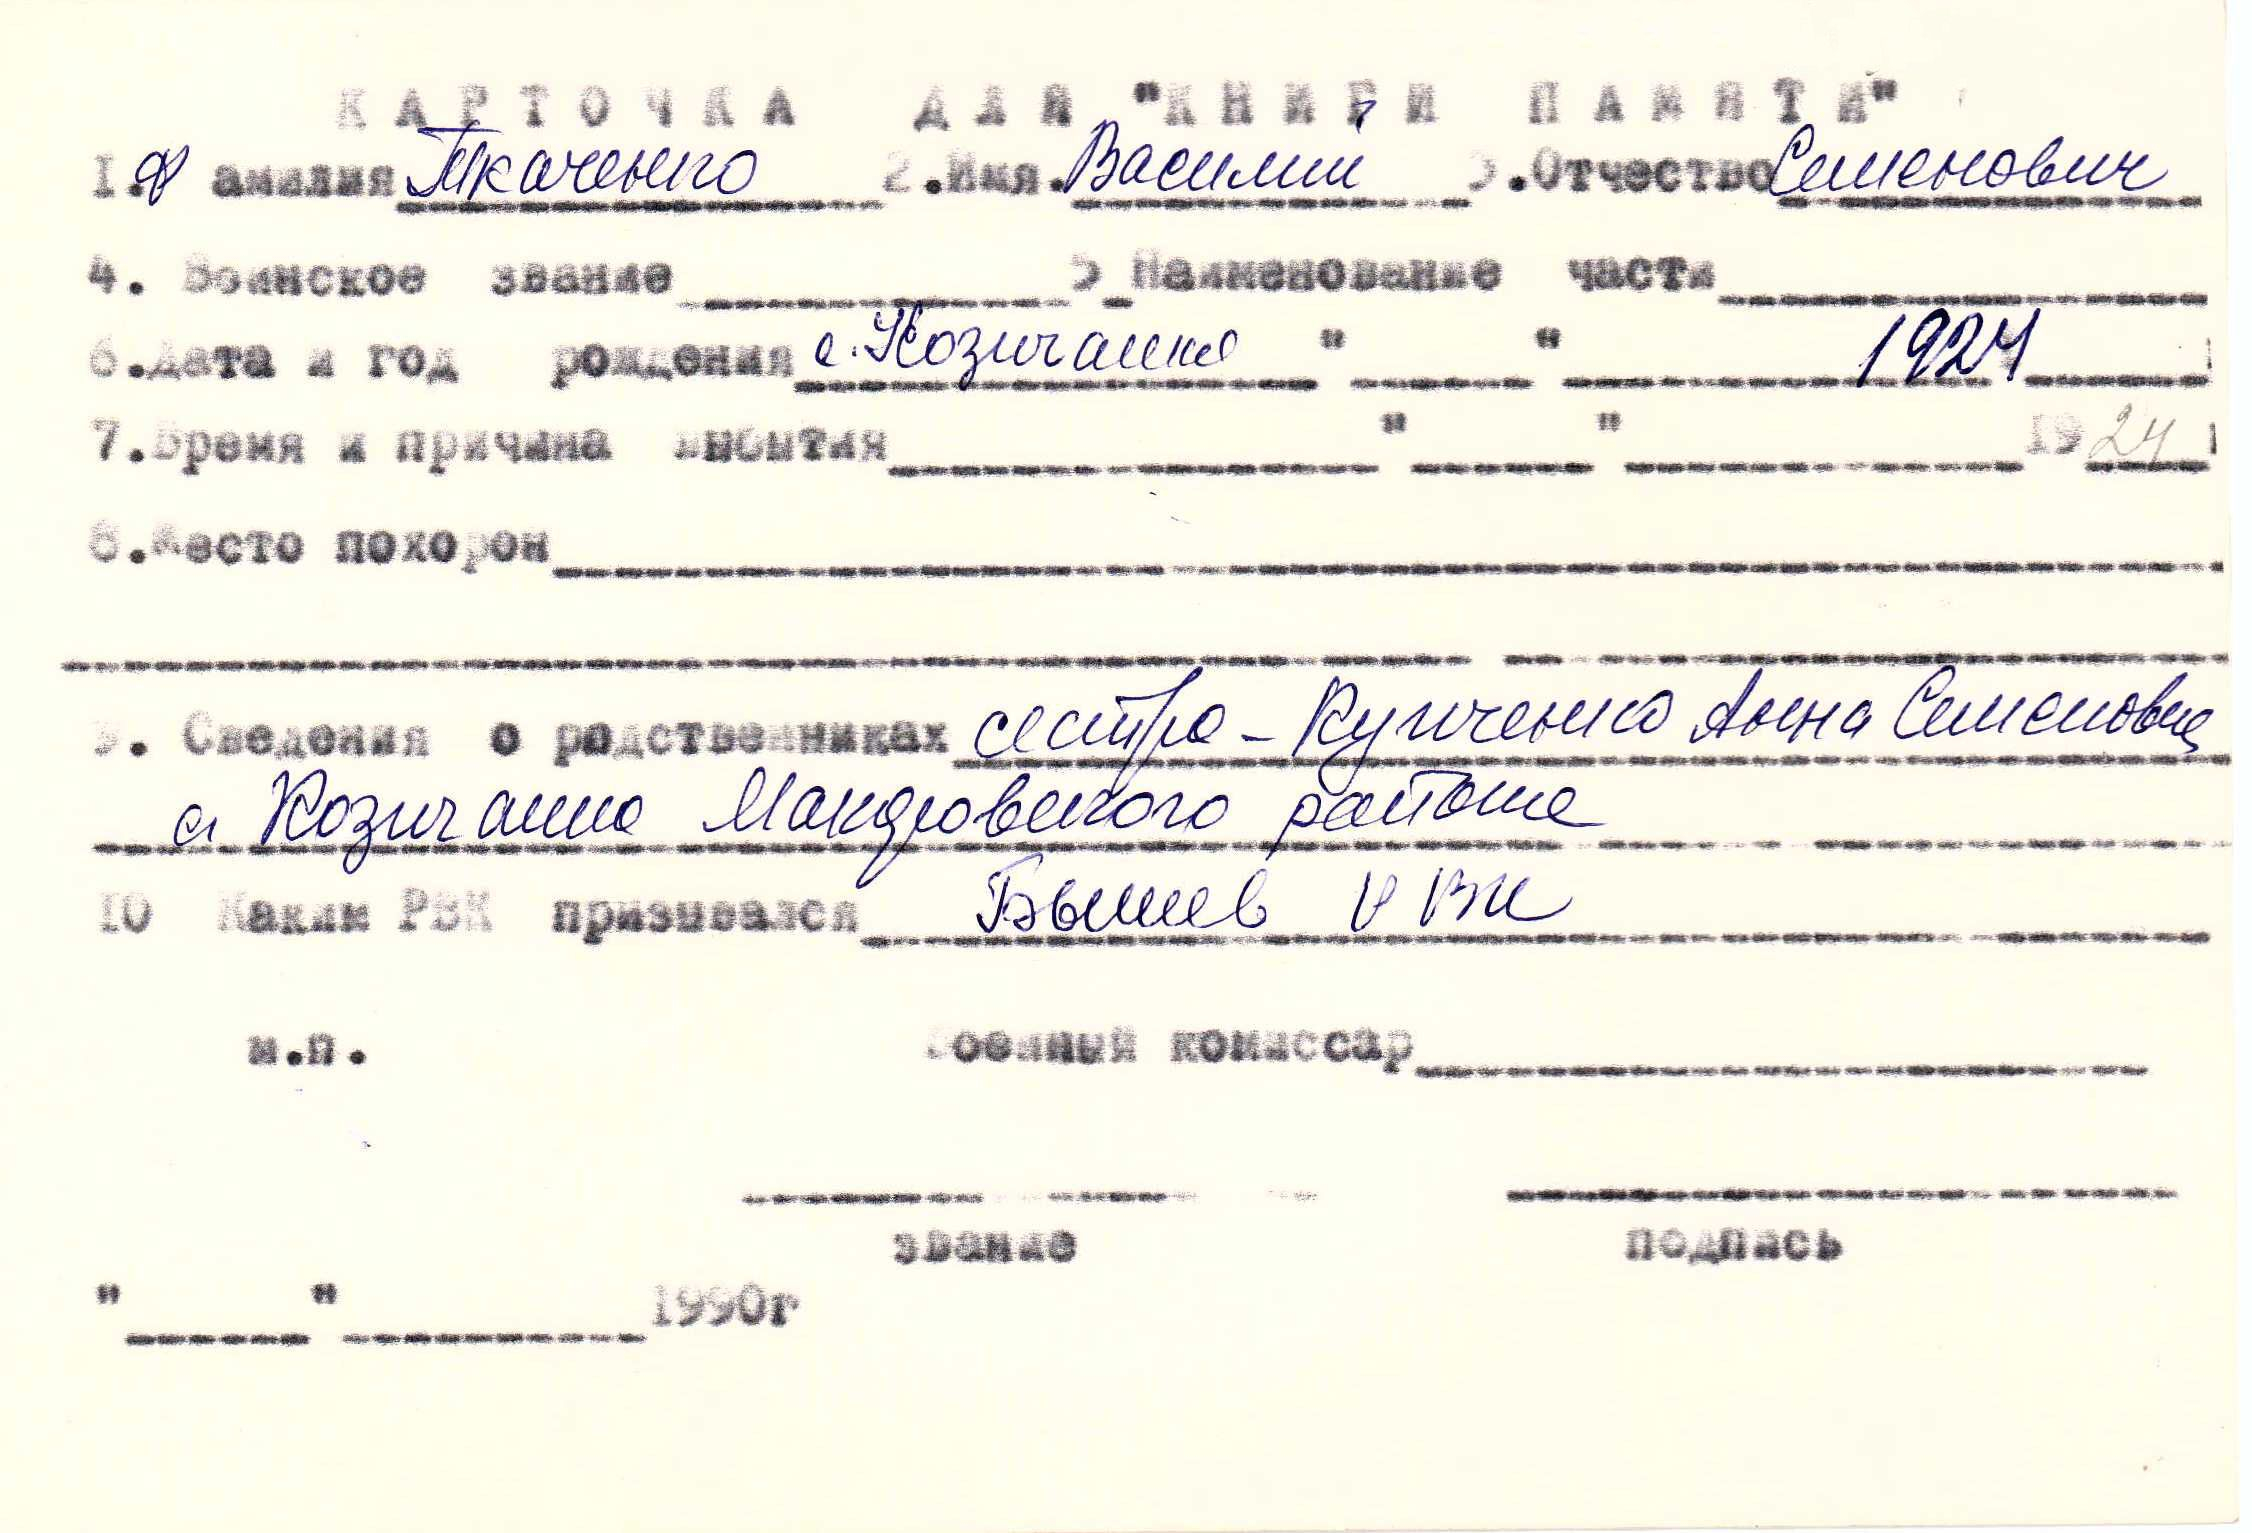 КАРТОЧКА ДЛЯ "КНИГИ ПАМЯТИ"
1.Фамилия Ткаченко 2.Имя. Василий 3.Отчество Семенович
4. Воинское звание 5 Наименование части
6.Дата и год рождения с. Козичанка " " 1924
7.Время и причина выбытия " " 1924
8.Место похорон
9. Сведения о родственниках сестра - Купченко Анна Семеновна
с. Козичанка Макаровского района
10 Каким РВК призывался Бышев РВК
м.п. Военный комиссар
звание подпись
" " 1990г